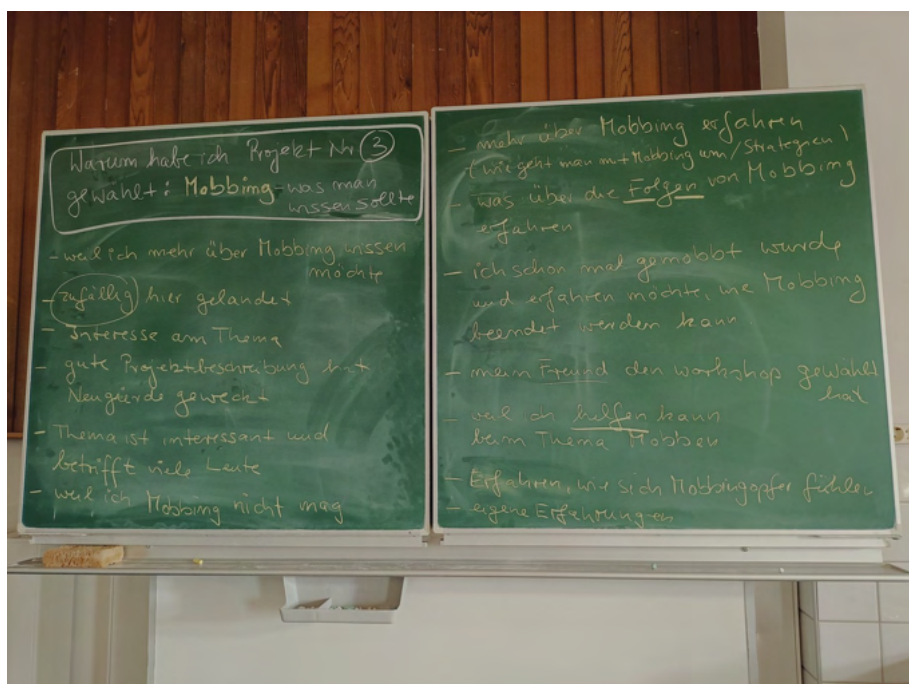 Warum habe ich Projekt Nr. 3
gewählt: Mobbing - was man
wissen sollte
- weil ich mehr über Mobbing wissen
möchte
- zufällig hier gelandet
- Interesse am Thema
- gute Projektbeschreibung hat
Neugierde geweckt
- Thema ist interessant und
betrifft viele Leute
- weil ich Mobbing nicht mag
- mehr über Mobbing erfahren
(wie geht man mit Mobbing um / Strategien)
- was über die Folgen von Mobbing
erfahren
- ich schon mal gemobbt wurde
und erfahren möchte, wie Mobbing
beendet werden kann
- mein Freund den workshop gewählt
hat
- weil ich helfen kann
beim Thema Mobben
- Erfahren, wie sich Mobbingopfer fühlen
- eigene Erfahrungen